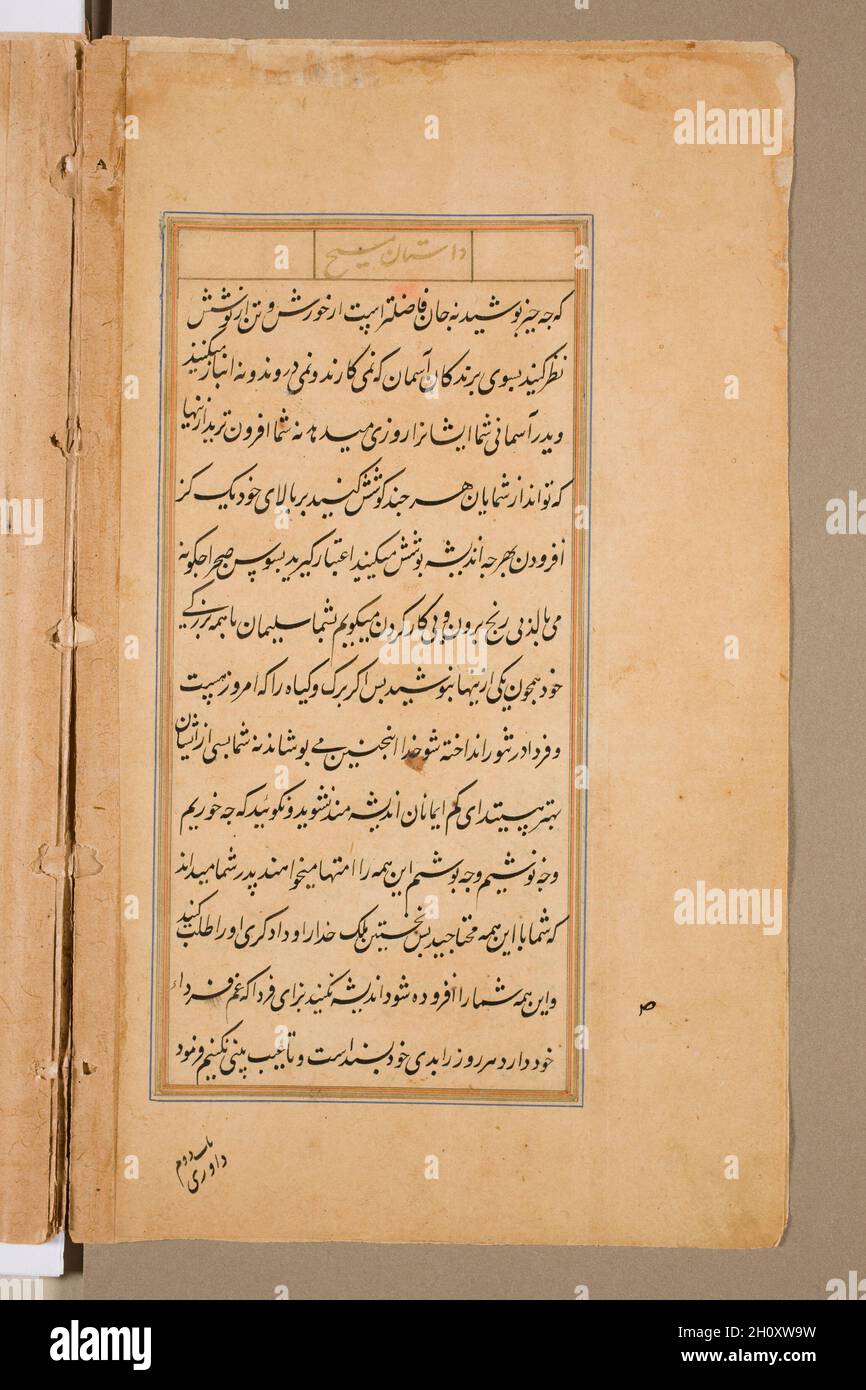 داستان مسیح
که جه جیز بوشید نه جان فاضلتر است از خورش و تن از بوشش
نظر کنید بسوی برندکان آسمان که نمی کارند و نمی دروند و نه انبار میکنند
و پدر آسمانی شما ایشانرا روزی میدهد نه شما افزون ترید از ینها
که تواند از شمایان هر جند کوشش کنید بر بالای خود یک کز
افزودن بهر جه اندیشه بوشش میکنید اعتبار کیرید بسوسن صحرا جکونه
می بالد بی رنج برون و بی کار کردن میکویم بشما سلیمان با همه بزرکی
خود همجون یکی از ینها نبوشید بس اکر برک و کیاه را که امروز هست
و فردا در تنور انداخته شود خدا اینجنین می بوشاند نه شما بسی از ایشان
بهتر هستید ای کم ایمانان اندیشه مند نشوید و نکوئید که جه خوریم
و جه نوشیم و جه بوشیم این همه را امتها میخواهند پدر شما میداند
که شما با این همه محتاجید بس نخستین ملک خدا را و دادکری او را طلب کنید
و این همه شما را افزوده شود اندیشه نکنید برای فردا که غم فردا
خود دارد هر روز را بدی خود بسند است و تا عیب بینی نکنیم فرمود
باب دوم
داوری
A
alamy
Image ID: 2H0XW9W
www.alamy.com